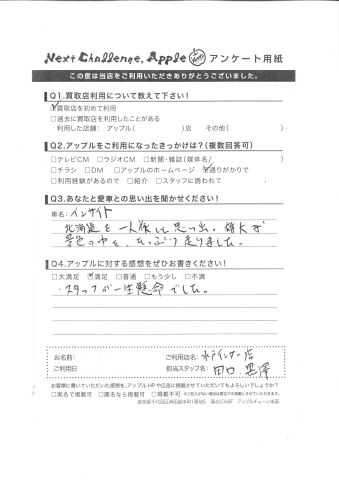 Next Challenge, Apple アンケート用紙
この度は当店をご利用いただきありがとうございました。
Q1.買取店利用について教えて下さい！
☑買取店を初めて利用
□過去に買取店を利用したことがある
利用した店舗： アップル（　　　　）店　その他（　　　　）
Q2.アップルをご利用になったきっかけは？（複数回答可）
□テレビCM □ラジオCM □新聞・雑誌（媒体名／　　　　）
□チラシ □DM □アップルのホームページ ☑通りがかりで
□利用経験があるので □紹介 □スタッフに誘われて
Q3.あなたと愛車との思い出を聞かせください！
車名：インサイト
北海道を一人旅した思い出。雄大な
景色の中を、たっぷり走りました。
Q4.アップルに対する感想をぜひお書きください！
□大満足 ☑満足 □普通 □もう少し □不満
・スタッフが一生懸命でした。
お名前： ご利用店名：水戸インター店
ご利用日 担当スタッフ名：田口 黒澤
お客様に書いていただいた感想を、アップルHPや広告に掲載させていただいてもよろしいでしょうか？
□実名で掲載可 □匿名なら掲載可 □掲載不可 ※ご記入がない場合は匿名での掲載とさせていただきます。